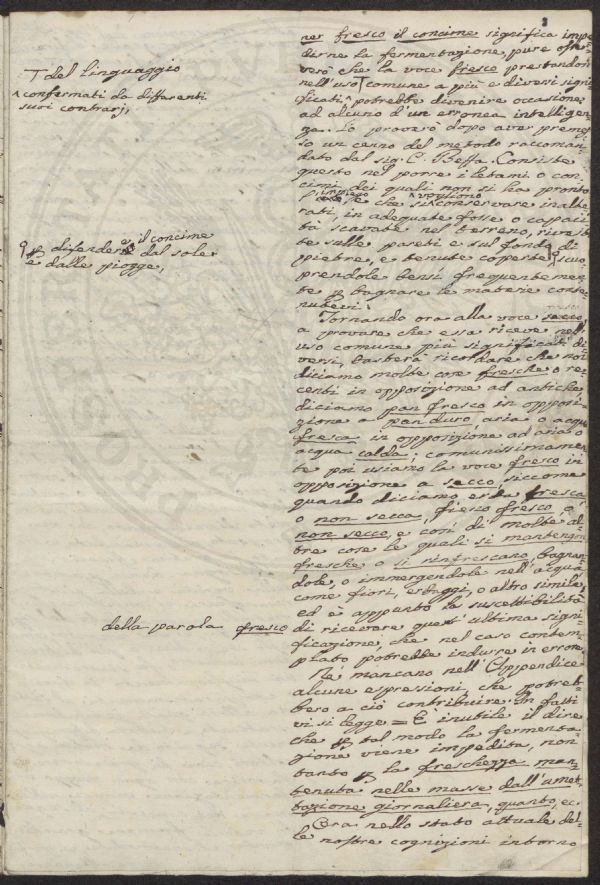 3
ner fresco il concime significa impe
dirne la fermentazione, pure osser
verò che la voce fresco prestandosi
nell'uso T comune a più e diversi signi
ficati ^ potrebbe divenire occasione
ad alcuno d'un erronea intelligen
za. Lo proverò dopo aver premes
so un cenno del metodo raccoman
dato dal sig. C. Beffa. Consiste
questo nel porre i letami o con
cimi dei quali non si ha pronto
impiego vogliono
e che si ^ conservare inalte
rati, in adequate fosse o capaci
tà scavate nel terreno, rivesti
te sulle pareti e sul fondo di
pietre, e tenute coperte scuo
prendole bensì frequentemen
te p bagnare le materie conte
nutevi.
Tornando ora alla voce secco,
a provare che essa riceve nell'
uso comune più significati di
versi, basterà ricordare che noi
diciamo molte cose fresche o re
centi in opposizione ad antiche
diciamo pan fresco in opposi
zione a pan duro, aria o acqua
fresca in opposizione ad aria o
acqua calda; comunissimamen
te poi usiamo la voce fresco in
opposizione a secco, siccome
quando diciamo erba fresca
o non secca, fieno fresco o
non secco, e così di molte al
tre cose le quali si mantengono
fresche o si rinfrescano bagnan
dole, o immergendole nell'acqua
come fiori, erbaggi, o altro simile,
ed è appunto la suscettibilità
di ricevere quest'ultima signi
ficazione, che nel caso contem
plato potrebbe indurre in errore.
Nè mancano nell'Appendice
alcune espressioni, che potreb
bero a ciò contribuire. In fatti
vi si legge = È inutile il dire
che p tal modo la fermenta
zione viene impedita, non
tanto p la freschezza man
tenuta nelle masse dall'umet
tazione giornaliera, quanto ec.
Ora nello stato attuale del
le nostre cognizioni intorno
T del linguaggio
^ confermati da differenti
suoi contrarj,
p difendere il concime
dal sole
e dalle piogge,
della parola fresco